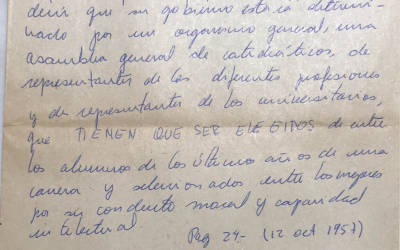 decir que su gobierno estaría determi-
nado por un organismo general, una
asamblea general de catedráticos, de
representantes de las diferentes profesiones
y de representantes de los universitarios,
que TIENEN QUE SER ELEGIDOS de entre
los alumnos de los últimos años de una
carrera y seleccionados entre los mejores
por su conducta moral y capacidad
intelectual
Pag 24- (12 oct 1957)